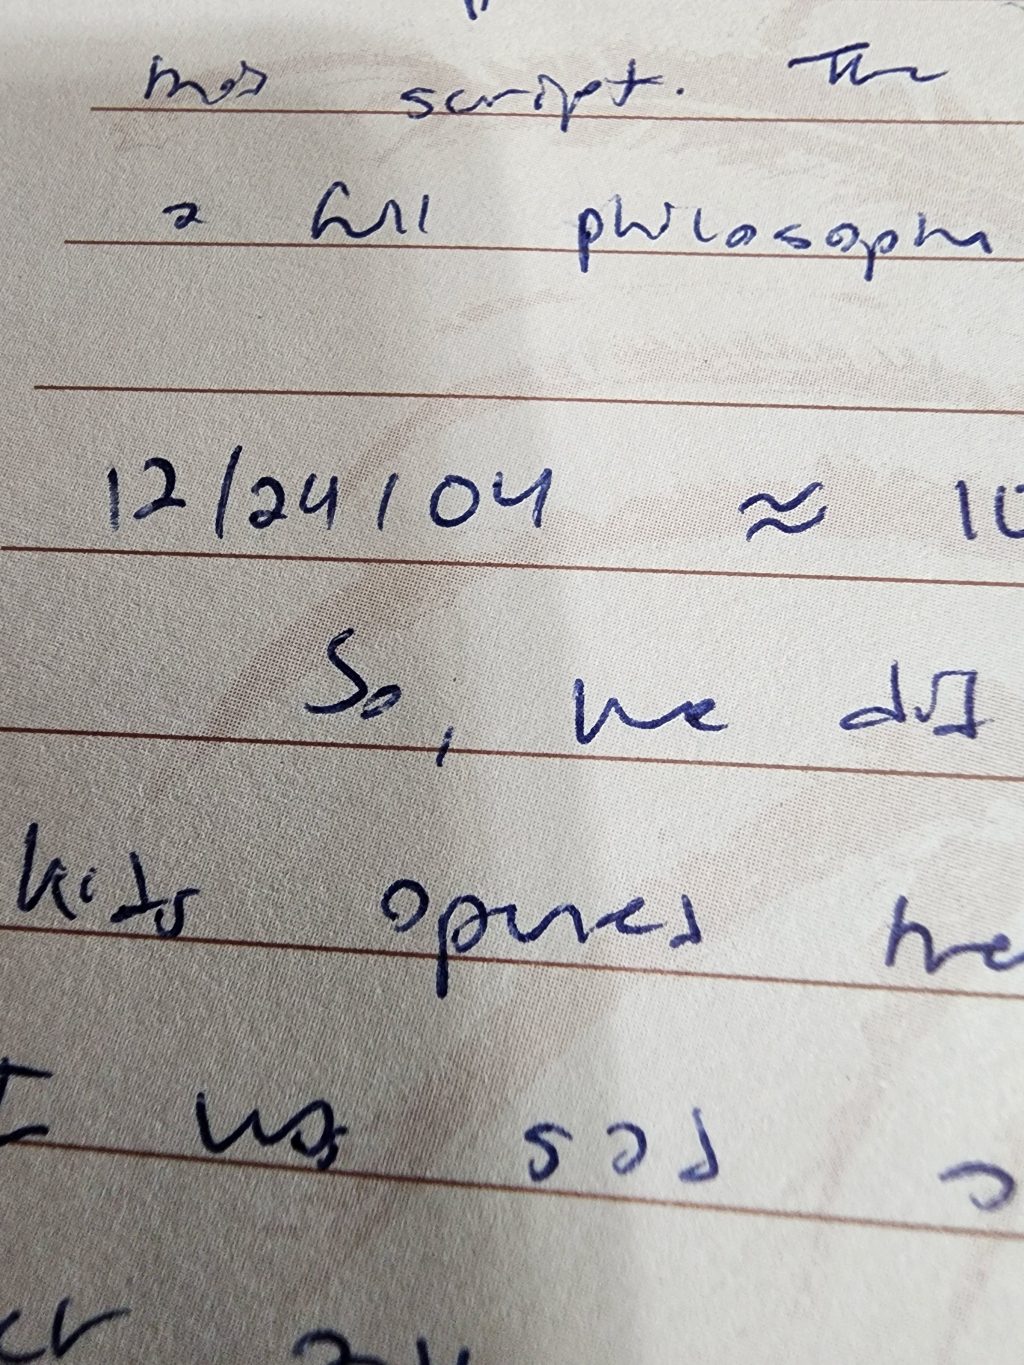 script. The
a full
12/24/04 ≈ 10
So, we did
kids opened the
I was sad a